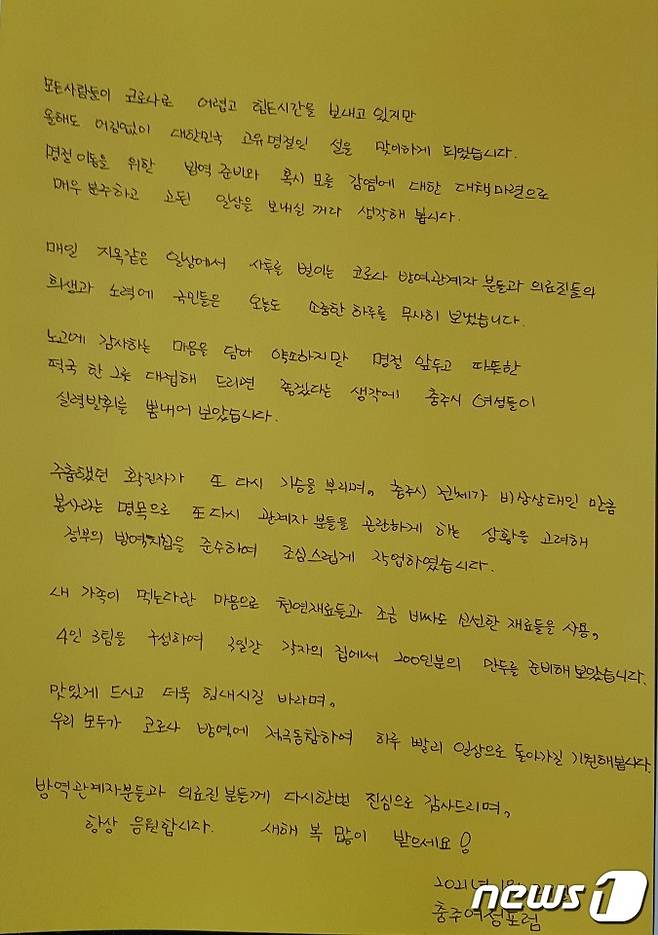 모든사람들이 코로나로 어렵고 힘든시간을 보내고 있지만
올해도 어김없이 대한민국 고유명절인 설을 맞이하게 되었습니다.
명절 이동을 위한 방역 준비와 혹시 모를 감염에 대한 대책마련으로
매우 분주하고 고된 일상을 보내실 꺼라 생각해 봅니다.
매일 지옥같은 일상에서 사투를 벌이는 코로나 방역관계자 분들과 의료진들의
희생과 노력에 국민들은 오늘도 소중한 하루를 무사히 보냈습니다.
노고에 감사하는 마음을 담아 약소하지만 명절 앞두고 따뜻한
떡국 한 그릇 대접해 드리면 좋겠다는 생각에 충주시 여성들이
실력발휘를 뽐내어 보았습니다.
주춤했던 확진자가 또 다시 기승을 부리며, 충주시 전체가 비상상태인 만큼
봉사라는 명목으로 또다시 관계자 분들을 곤란하게 하는 상황을 고려해
정부의 방역지침을 준수하여 조심스럽게 작업하였습니다.
내 가족이 먹는다란 마음으로 천연재료들과 조금 비싸도 신선한 재료들을 사용,
4인 3팀을 구성하여 3일간 각자의 집에서 200인분의 만두를 준비해보았습니다.
맛있게 드시고 더욱 힘내시길 바라며,
우리 모두가 코로나 방역에 적극동참하여 하루 빨리 일상으로 돌아가길 기원해봅니다.
방역관계자분들과 의료진 분들께 다시한번 진심으로 감사드리며,
항상 응원합니다. 새해 복 많이 받으세요!
2021년
충주여성포럼
news1